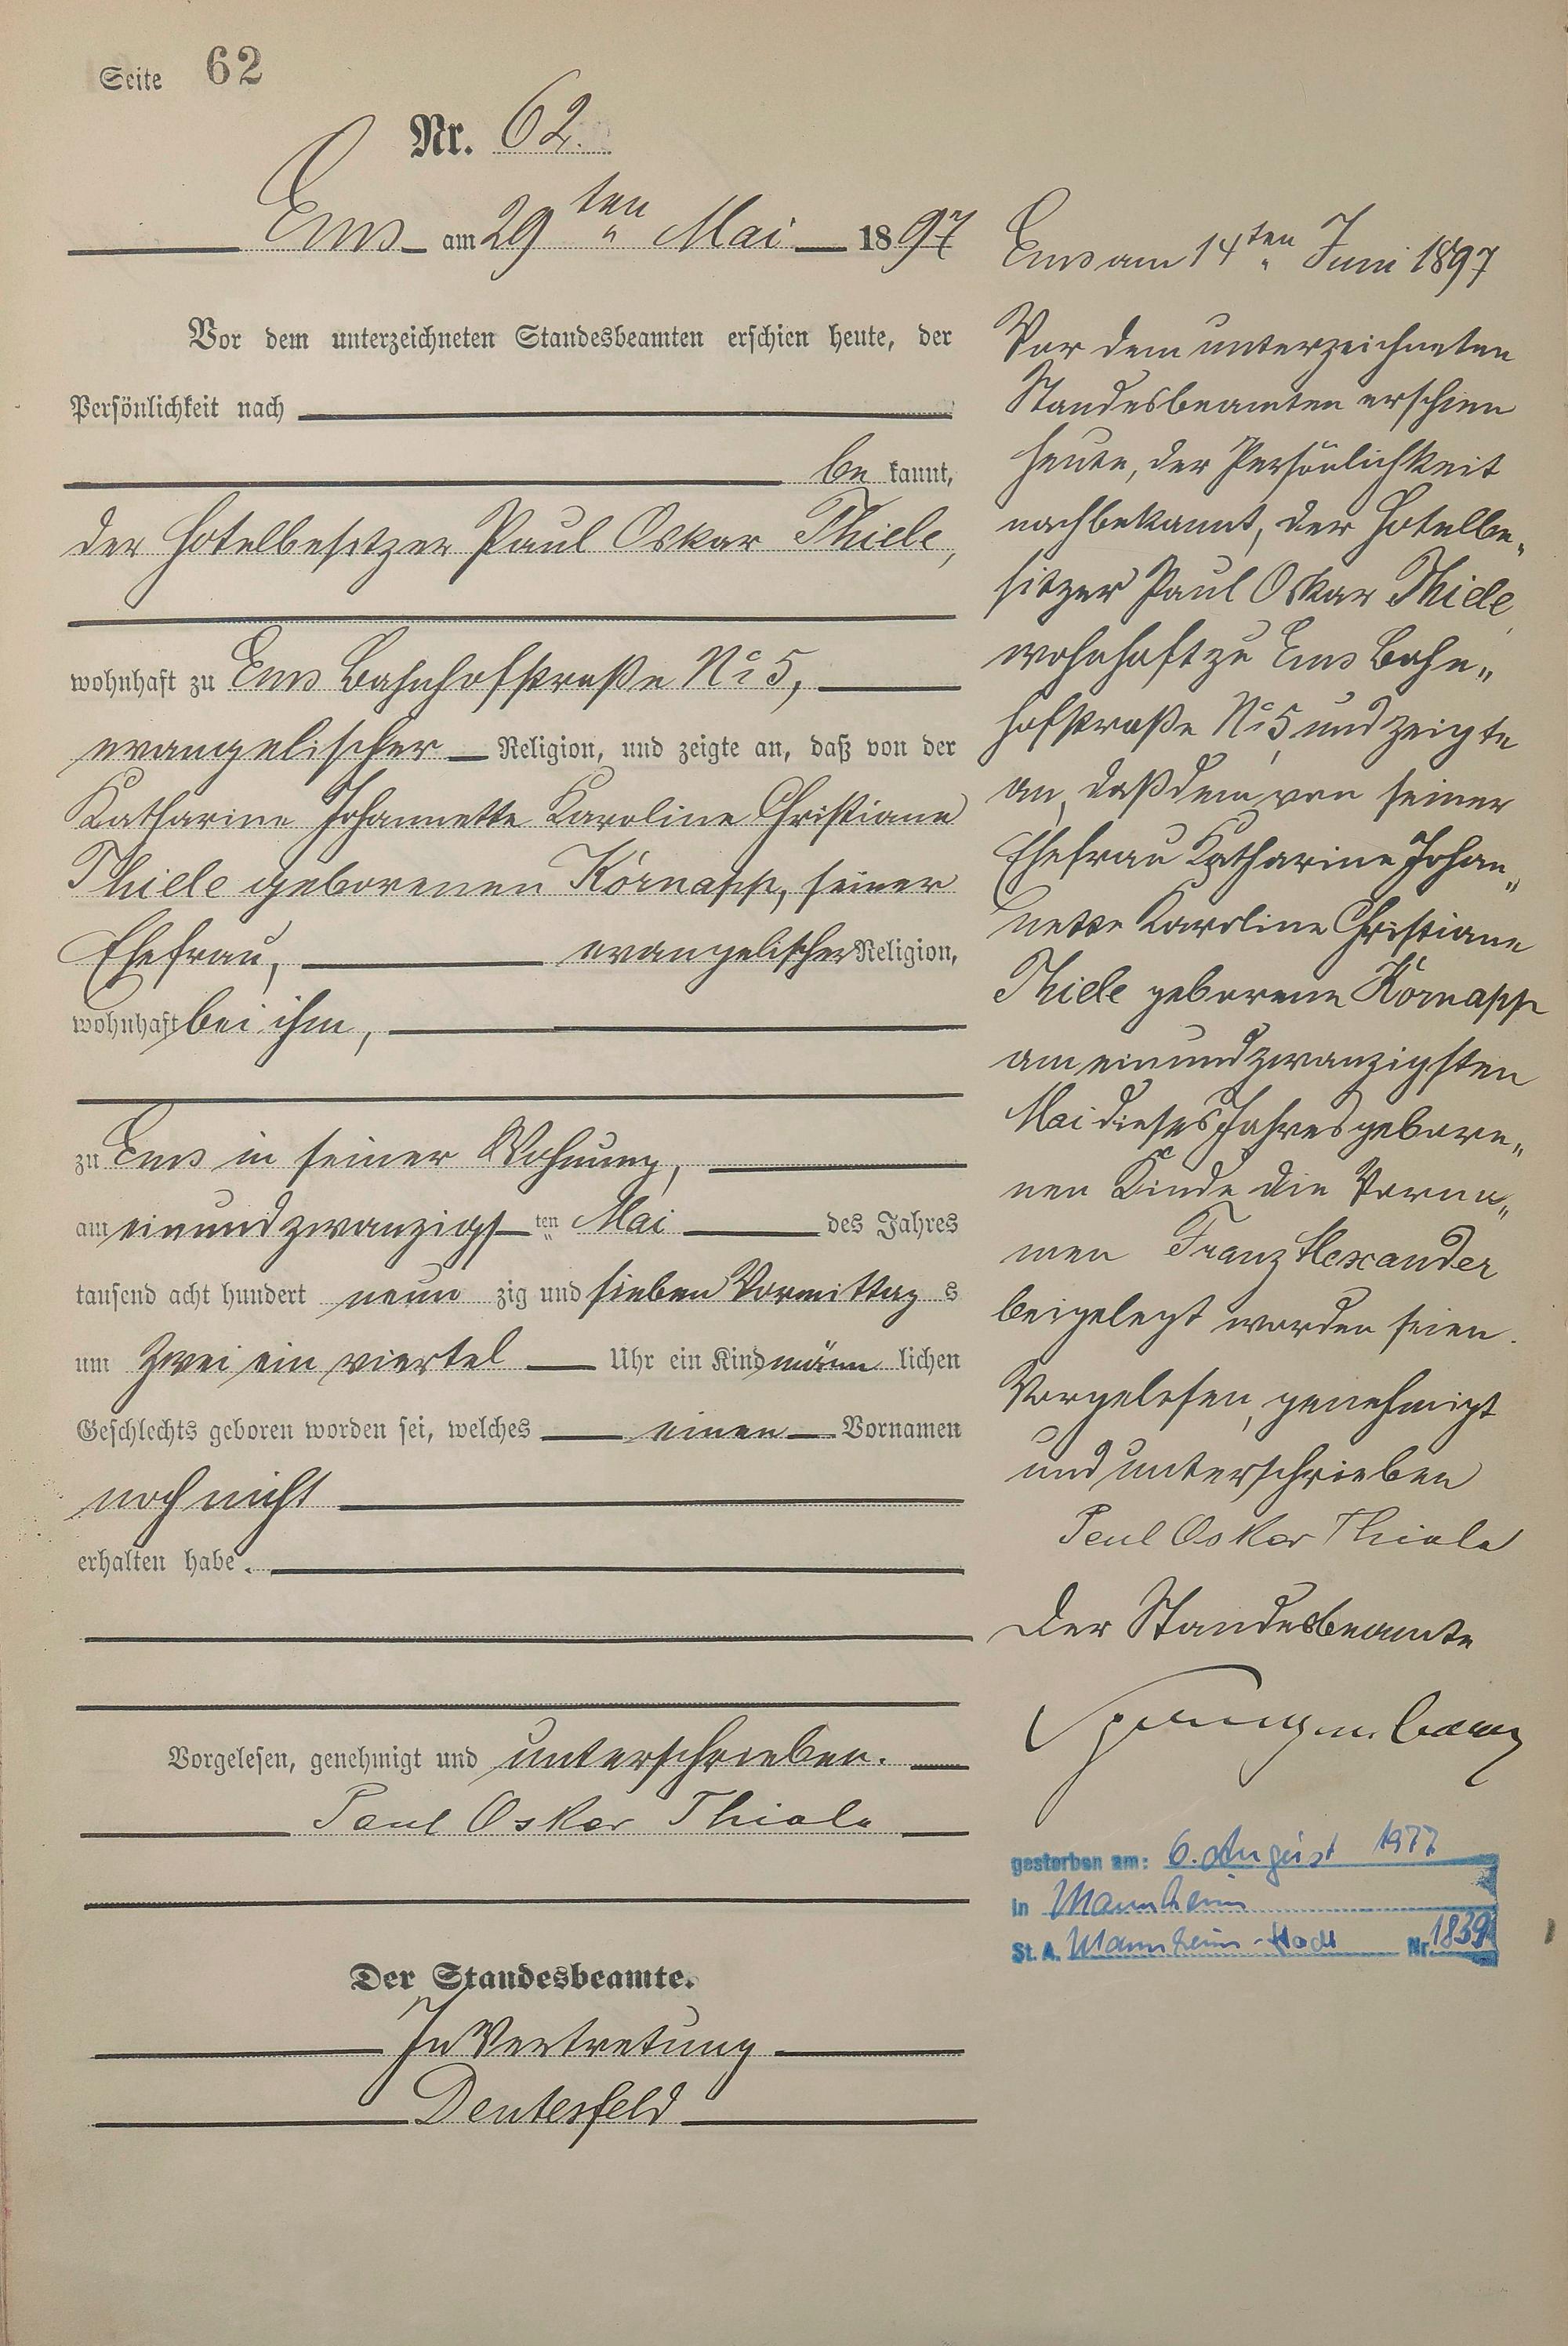 Seite 62
Nr. 62.
Ems am 29ten Mai 1897
Vor dem unterzeichneten Standesbeamten erschien heute, der
Persönlichkeit nach
be kannt,
der Hotelbesitzer Paul Oskar Thiele,
wohnhaft zu Ems Bahnhofstraße No 5,
evangelischer Religion, und zeigte an, daß von der
Katharine Johannette Karoline Christiane
Thiele geborenen Körnapp, seiner
Ehefrau, evangelischer Religion,
wohnhaft bei ihm,
zu Ems in seiner Wohnung,
am einundzwanzigsten Mai des Jahres
tausend acht hundert neun zig und sieben Vormittag s
um zwei ein viertel Uhr ein Kind männ lichen
Geschlechts geboren worden sei, welches einen Vornamen
noch nicht
erhalten habe.
Vorgelesen, genehmigt und unterschrieben.
Paul Oskar Thiele
Der Standesbeamte.
In Vertretung
Deutesfeld
Ems am 14ten Juni 1897
Vor dem unterzeichneten
Standesbeamten erschien
heute, der Persönlichkeit
nach bekannt, der Hotelbe„
sitzer Paul Oskar Thiele
wohnhaft zu Ems Bahn„
hofstraße No 5, und zeigte
an, daß dem von seiner
Ehefrau Katharine Johan„
nette Karoline Christiane
Thiele geborene Körnapp
am einundzwanzigsten
Mai dieses Jahres gebore„
nen Kinde die Vorna„
men Franz Alexander
beigelegt worden seien.
Vorgelesen, genehmigt
und unterschrieben
Paul Oskar Thiele
Der Standesbeamte
gestorben am: 6. August 1977
in Mannheim
St. A. Mannheim-Stadt Nr. 1839